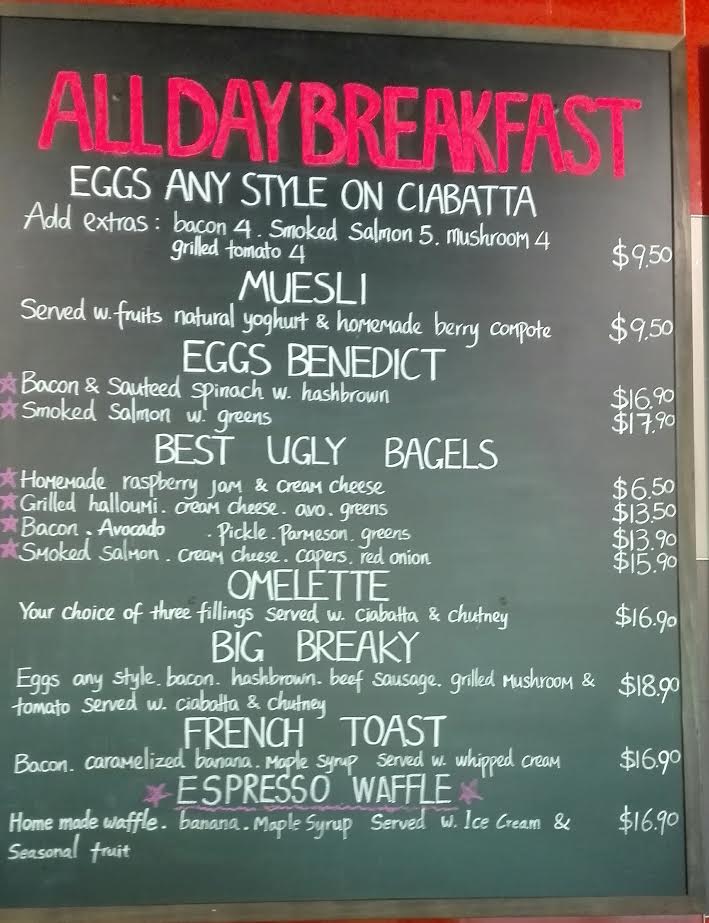 ALL DAY BREAKFAST
EGGS ANY STYLE ON CIABATTA
Add extras: bacon 4. Smoked Salmon 5. mushroom 4
grilled tomato 4 $9.50
MUESLI
Served w. fruits natural yoghurt & homemade berry compote $9.50
EGGS BENEDICT
Bacon & Sauteed Spinach w. hashbrown $16.90
Smoked Salmon w. greens $17.90
BEST UGLY BAGELS
Homemade raspberry jam & cream cheese $6.50
Grilled halloumi. cream cheese. avo. greens $13.50
Bacon. Avocado . Pickle. Parmeson. greens $13.90
Smoked Salmon. cream cheese. capers. red onion $15.90
OMELETTE
Your choice of three fillings served w. ciabatta & chutney $16.90
BIG BREAKY
Eggs any style. bacon. hashbrown. beef sausage. grilled mushroom & $18.90
tomato served w. ciabatta & chutney
FRENCH TOAST
Bacon. caramelized banana. Maple Syrup Served w. whipped cream $16.90
ESPRESSO WAFFLE
Home made waffle. banana. Maple Syrup Served w. Ice Cream & $16.90
Seasonal fruit